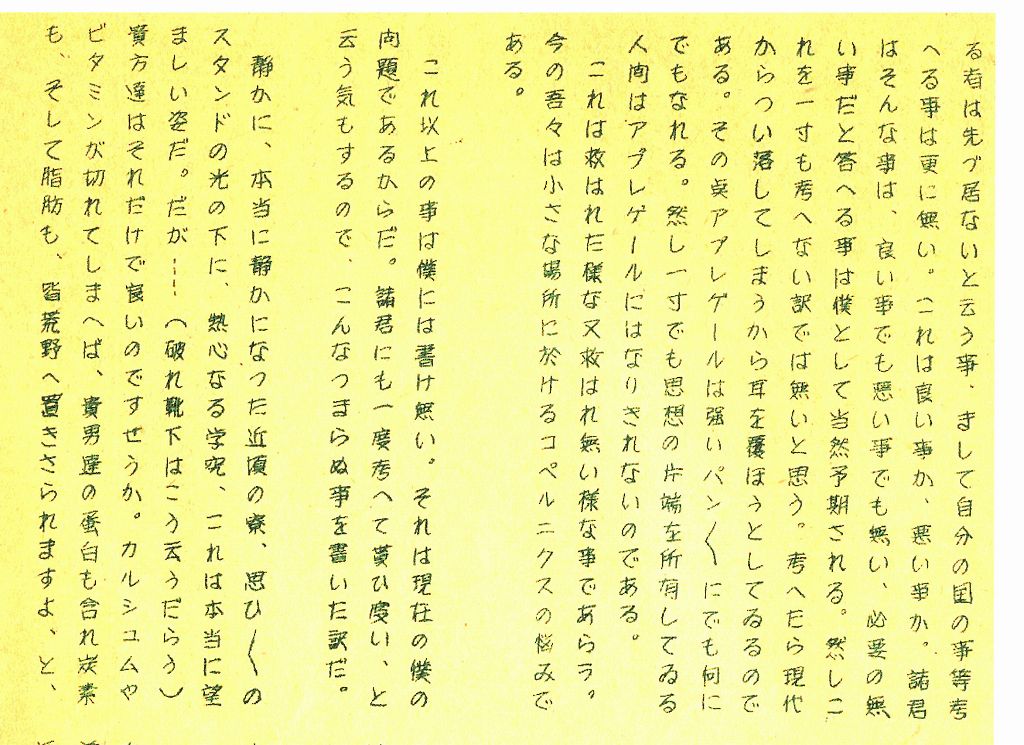 る者は先づ居ないと云う事、まして自分の国の事等考
へる事は更に無い。これは良い事か、悪い事か。諸君
はそんな事は、良い事でも悪い事でも無い、必要の無
い事だと答へる事は僕として当然予期される。然しこ
れを一寸も考へない訳では無いと思う。考へたら現代
からつい落してしまうから耳を覆ほうとしてゐるので
ある。その点アプレゲールは強いパン〳〵にでも何に
でもなれる。然し一寸でも思想の片端を所有してゐる
人間はアプレゲールにはなりきれないのである。
これは救はれた様な又救はれ無い様な事であらう。
今の吾々は小さな場所に於けるコペルニクスの悩みで
ある。
これ以上の事は僕には書け無い。それは現在の僕の
問題であるからだ。諸君にも一度考へて貰ひ度い、と
云う気もするので、こんなつまらぬ事を書いた訳だ。
静かに、本当に静かになつた近頃の寮、思ひ〳〵の
スタンドの光の下に、熱心なる学究、これは本当に望
ましい姿だ。だが---- (破れ靴下はこう云うだらう)
貴方達はそれだけで良いのですせうか。カルシユムや
ビタミンが切れてしまへば、貴男達の蛋白も含れ炭素
も、そして脂肪も、皆荒野へ置きさられますよ、と、